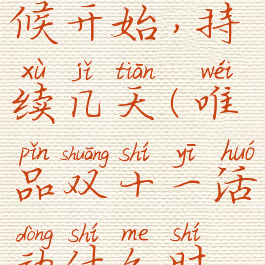 候开始，持
xù jǐ tiān wéi
续几天（唯
pǐn shuāng shí yī huó
品双十一活
dòng shí me shí
动什么时